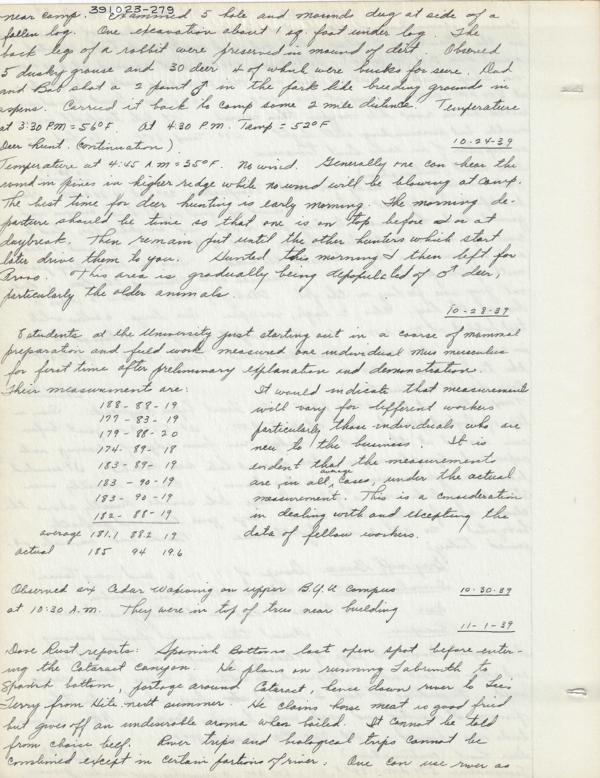 391023-279
near camp. Examined 5 hole and mounds dug at side of a
fallen log. One excavation about 1 sq. foot under log. The
back leg of a rabbit were preserved in mound of dirt. Observed
5 dusky grouse and 30 deer 4 of which were bucks for sure. Dad
and Bob shot a 2 point ♂ in the park like breeding grounds in
aspens. Carried it back to camp some 2 mile distance. Temperature
at 3:30 PM = 56°F. At 4:30 P.M. Temp = 52°F
Deer hunt. (Continuation).
10-24-39
Temperature at 4:45 A.M = 35°F. No wind. Generally one can hear the
wind in pines in higher ridge while no wind will be blowing at camp.
The best time for deer hunting is early morning. The morning de-
parture should be time so that one is on top before or at
daybreak. Then remain put until the other hunters which start
later drive them to you. Hunted this morning & then left for
Provo. This area is gradually being depopulated of ♂ deer,
particularly the older animals.
10-28-39
8 students at the University just starting out in a coarse of mammal
preparation and field work measured one individual Mus musculus
for first time after preliminary explanation and demonstration.
Their measurements are:
188-89-19
177-83-19
179-88-20
174-89-18
183-89-19
183-90-19
183-90-19
182-88-19
average 181.1 88.2 19
actual 185 94 19.6
It would indicate that measurements
will vary for different workers
particularly those individuals who are
new to the business. It is
evident that the average measurements
are, in all cases, under the actual
measurement. This is a consideration
in dealing with and excepting the
data of fellow workers.
Observed six Cedar Waxwing on upper B.Y.U campus
10-30-39
at 10:30 A.M. They were in top of trees near building
11-1-39
Dave Rust reports: Spanish Bottoms last open spot before enter-
ing the Cataract canyon. He plans on running Labrinth to
Spanish bottom, portage around Cataract, hence down river to Lees
Ferry from Hite next summer. He claims horse meat is good fried
but gives off an undesirable aroma when boiled. It cannot be told
from choise beef. River trips and biological trips cannot be
combined except in certain portions of river. One can use river as